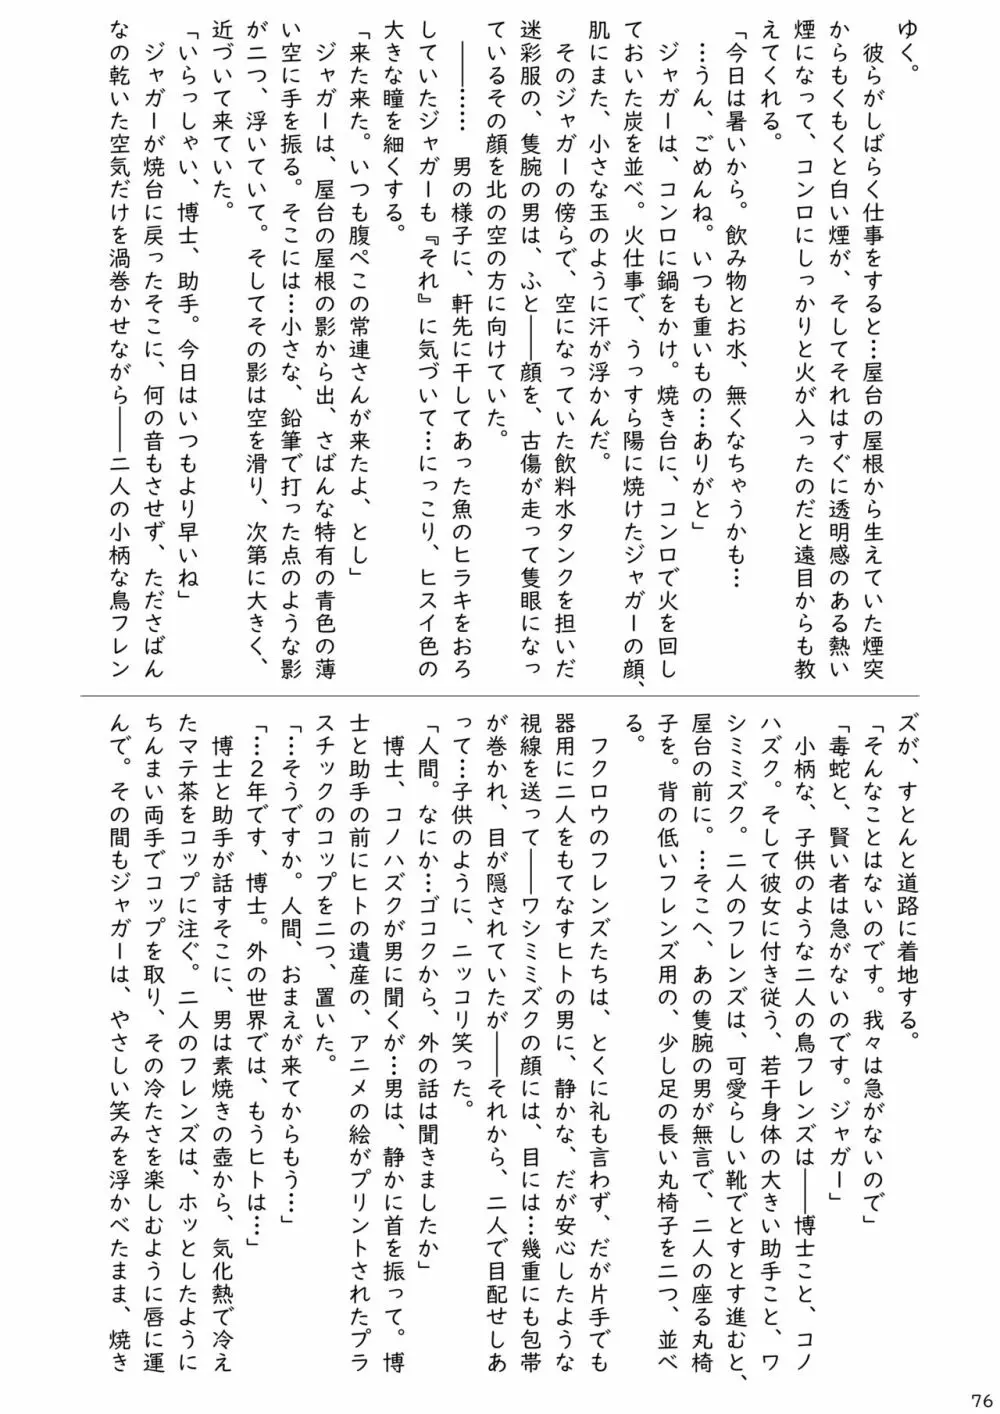 ゆく。
　彼らがしばらく仕事をすると…屋台の屋根から生えていた煙突
からもくもくと白い煙が、そしてそれはすぐに透明感のある熱い
煙になって、コンロにしっかりと火が入ったのだと遠目からも教
えてくれる。
「今日は暑いから。飲み物とお水、無くなちゃうかも…
　…うん、ごめんね。いつも重いもの…ありがと」
　ジャガーは、コンロに鍋をかけ。焼き台に、コンロで火を回し
ておいた炭を並べ。火仕事で、うっすら陽に焼けたジャガーの顔、
肌にまた、小さな玉のように汗が浮かんだ。
　そのジャガーの傍らで、空になっていた飲料水タンクを担いだ
迷彩服の、隻腕の男は、ふと――顔を、古傷が走って隻眼になっ
ているその顔を北の空の方に向けていた。
　――……　男の様子に、軒先に干してあった魚のヒラキをおろ
していたジャガーも『それ』に気づいて…にっこり、ヒスイ色の
大きな瞳を細くする。
「来た来た。いつも腹ペこの常連さんが来たよ、とし」
　ジャガーは、屋台の屋根の影から出、さばんな特有の青色の薄
い空に手を振る。そこには…小さな、鉛筆で打った点のような影
が二つ、浮いていて。そしてその影は空を滑り、次第に大きく、
近づいて来ていた。
「いらっしゃい、博士、助手。今日はいつもより早いね」
　ジャガーが焼台に戻ったそこに、何の音もさせず、たださばん
なの乾いた空気だけを渦巻かせながら――二人の小柄な鳥フレン
ズが、すとんと道路に着地する。
「そんなことはないのです。我々は急がないので」
「毒蛇と、賢い者は急がないのです。ジャガー」
　小柄な、子供のような二人の鳥フレンズは――博士こと、コノ
ハズク。そして彼女に付き従う、若干身体の大きい助手こと、ワ
シミミズク。二人のフレンズは、可愛らしい靴でとすとす進むと、
屋台の前に。…そこへ、あの隻腕の男が無言で、二人の座る丸椅
子を。背の低いフレンズ用の、少し足の長い丸椅子を二つ、並べ
る。
　フクロウのフレンズたちは、とくに礼も言わず、だが片手でも
器用に二人をもてなすヒトの男に、静かな、だが安心したような
視線を送って――ワシミミズクの顔には、目には…幾重にも包帯
が巻かれ、目が隠されていたが――それから、二人で目配せしあ
って…子供のように、ニッコリ笑った。
「人間。なにか…ゴコクから、外の話は聞きましたか」
　博士、コノハズクが男に聞くが…男は、静かに首を振って。博
士と助手の前にヒトの遺産の、アニメの絵がプリントされたプラ
スチックのコップを二つ、置いた。
「…そうですか。人間、おまえが来てからもう…」
「…２年です、博士。外の世界では、もうヒトは…」
　博士と助手が話すそこに、男は素焼きの壺から、気化熱で冷え
たマテ茶をコップに注ぐ。二人のフレンズは、ホッとしたように
ちんまい両手でコップを取り、その冷たさを楽しむように唇に運
んで。その間もジャガーは、やさしい笑みを浮かべたまま、焼き
76